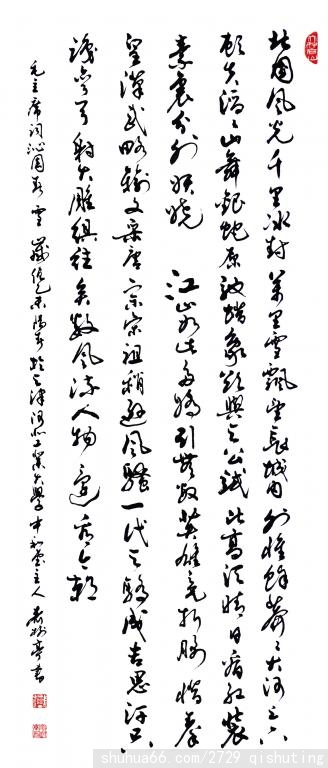 北国风光千里冰封万里雪飘望长城内外惟余莽莽大河上下
顿失滔滔山舞银蛇原驰蜡象欲与天公试比高须晴日看红装
素裹分外妖娆 江山如此多娇引无数英雄竞折腰惜秦
皇汉武略输文采唐宗宋祖稍逊风骚一代天骄成吉思汗只
识弯弓射大雕俱往矣数风流人物还看今朝
毛主席词沁园春雪 于天津河北工业大学中和堂主人 书
shuhua66.com/2729 qishuting